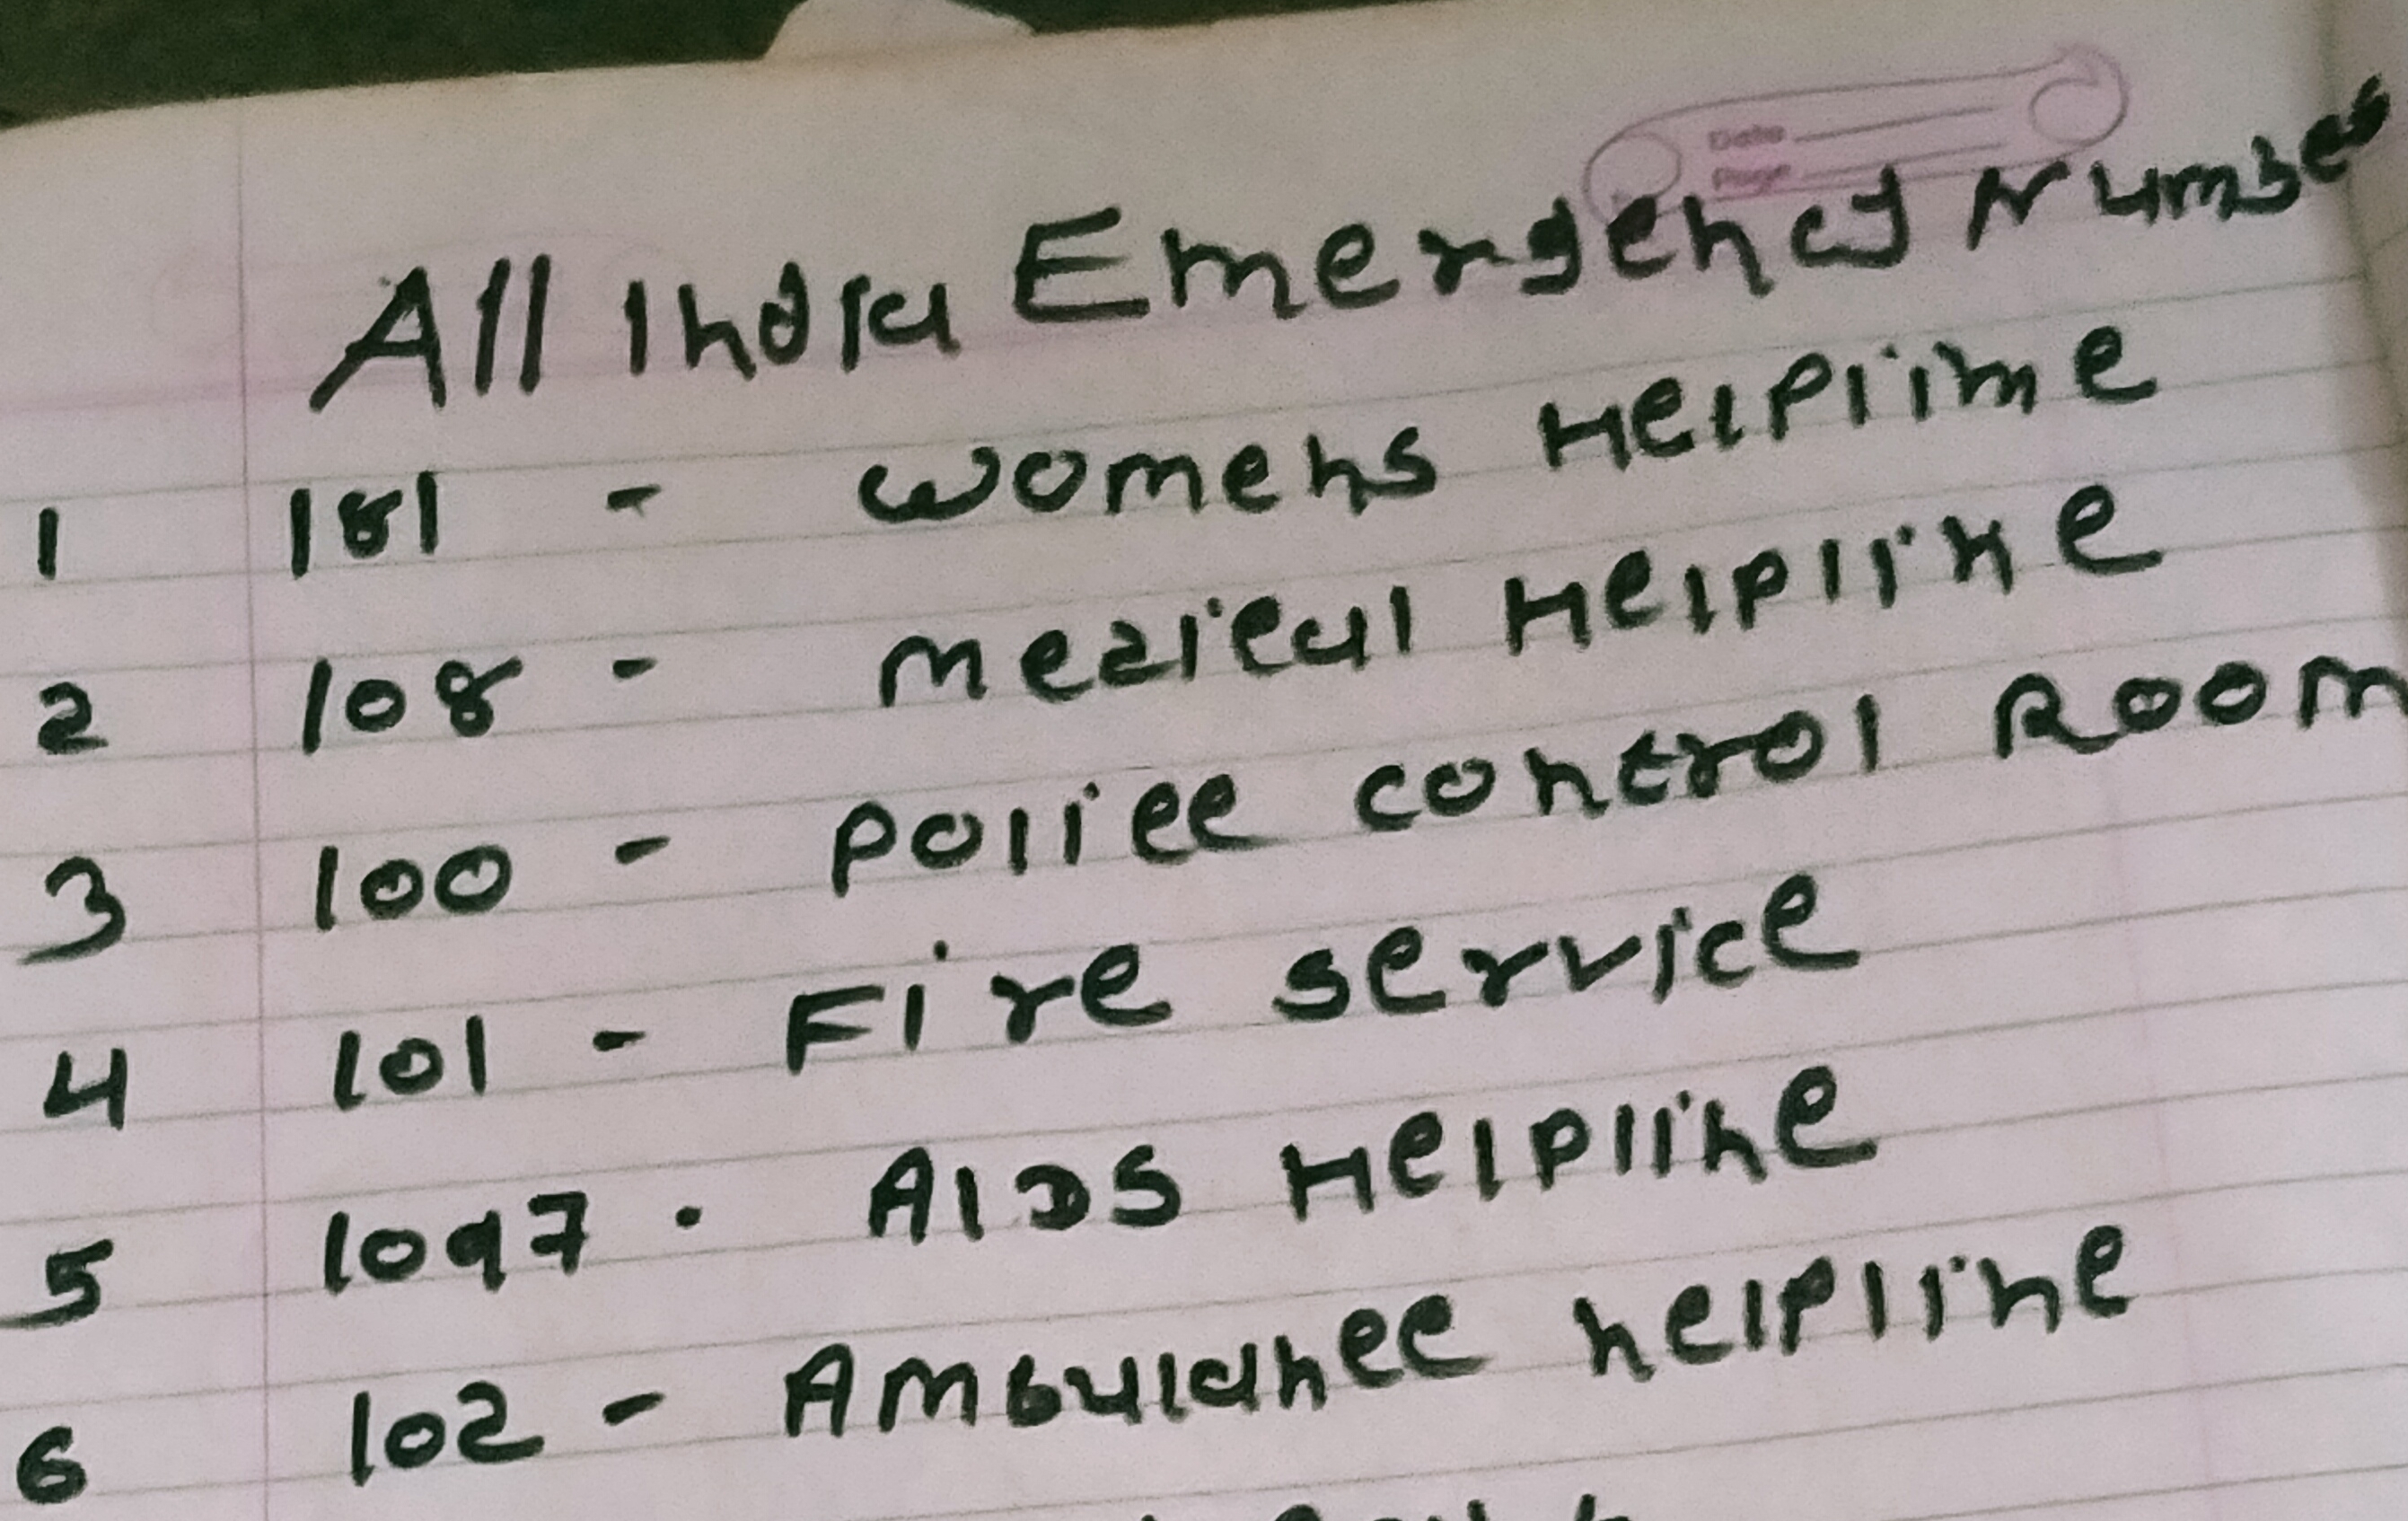 Date
Page
All India Emergency Number
1 181 - Womens Helpline
2 108 - Medical Helpline
3 100 - Police control Room
4 101 - Fire service
5 1097 . AIDS Helpline
6 102 - Ambulance helpline